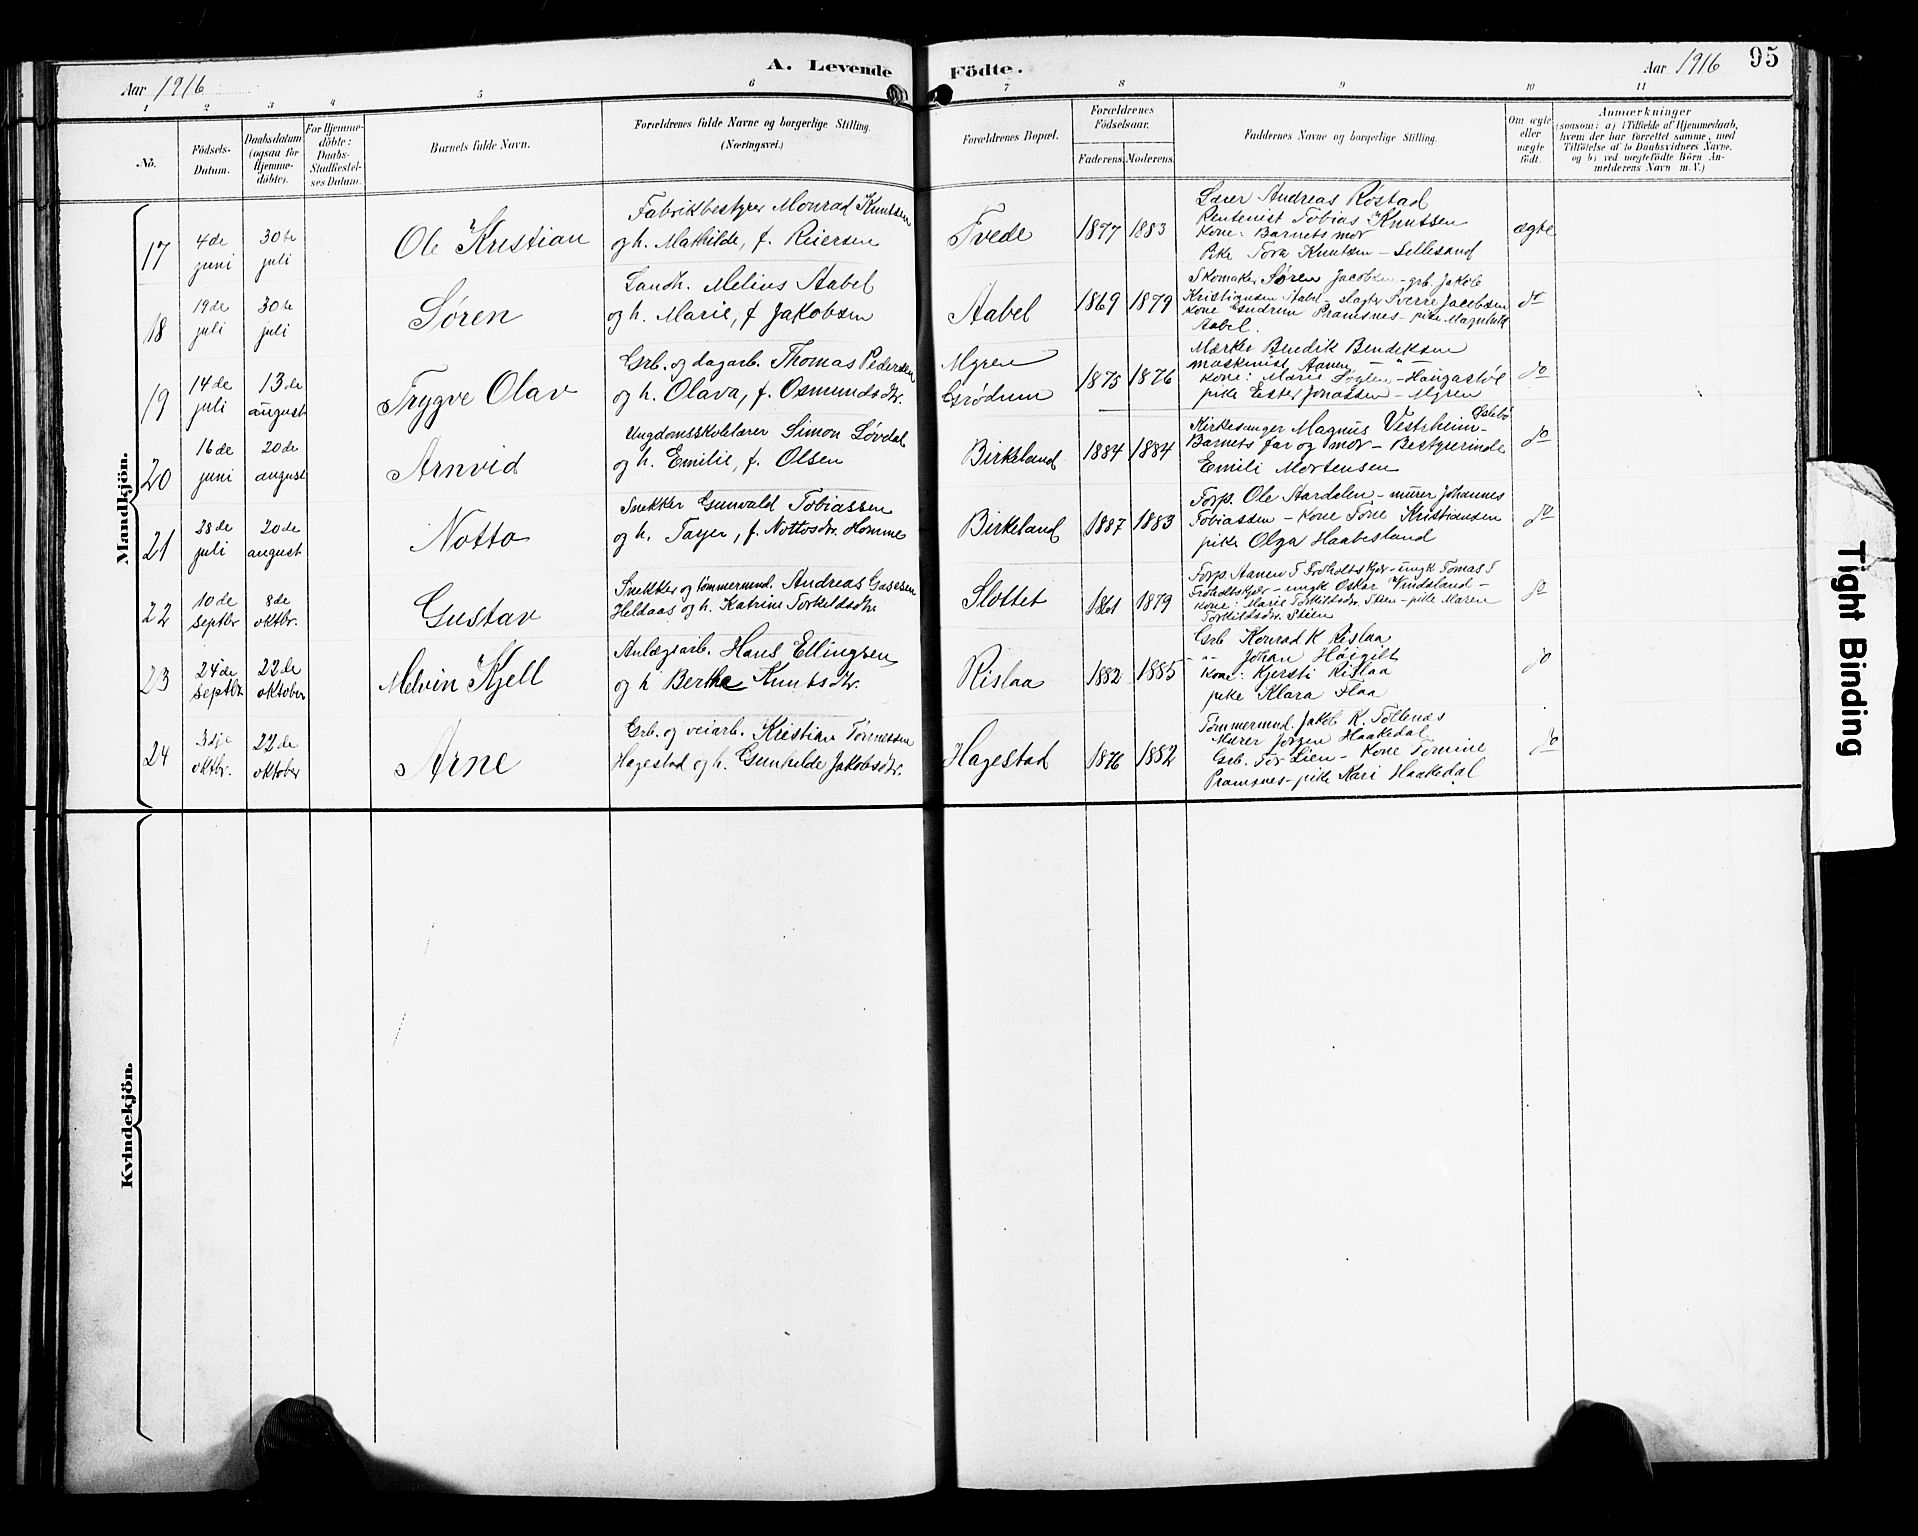 A. Levende Födte.
Aar 1916
Aar 1916
95
1 2 3 4 5 6 7 8 9 10 11
No.
Födsels-Datum.
Daabsdatum (ogsaa for Hjemmedöbte).
For Hjemmedöbte: Daabs-Stadfæstelses Datum.
Barnets fulde Navn.
Forældrenes fulde Navne og borgerlige Stilling. (Næringsvei.)
Forældrenes Bopæl.
Forældrenes Födselsaar.
Faderens. Moderens.
Faddernes Navne og borgerlige Stilling.
Om ægte eller uægte födt.
Anmærkninger
(saasom: a) i Tilfælde af Hjemmedaab,
hvem der har forrettet samme, med
Tilföielse af to Daabsvidners Navne,
og b) ved uægtefödte Börn An-
melderens Navn m. V.)
Mandkjön.
17
4de juni
30te juli
Ole Kristian
Fabrikbestyrer Monrad Knutsen
og h. Mathilde, f. Reiersen
Tvede
1877 1883
Lærer Andreas Røstad
Rentenist Tobias Knutsen
Kone: Barnets mor
Pike Tora Knutsen - Lillesand
ægte
18
19de juli
30te juli
Søren
Landh. Melius Aabel
og h. Marie, f. Jakobsen
Aabel
1869 1879
Skomaker Søren Jacobsen - grb. Jakob
Kristiansen Aabel - slagter Sverre Jacobsen
Kone Gudrun Pramsnes - pike Magnhild
Aabel.
do
19
14de juli
13de august
Trygve Olav
Grb. og dagarb. Thomas Pedersen
og h. Olava, f. Osmundsdtr.
Myren
Grødum
1875 1876
Mærker Bendik Bendiksen
maskinist Aanen - " -
Kone: Marie Føglen - Haugastøl
pike Ester Jonassen - Myren
do
20
16de juni
20de august
Arnvid
Ungdomsskolelærer Simon Løvdal
og h. Emilie, f. Olsen
Birkeland
1884 1884
Kirkesanger Magnus Vestrheim - Østebø
Barnets far og mor - Bestyrerinde
Emili Mortensen
do
21
28de juli
20de august
Notto
Snekker Gunvald Tobiassen
og h. Tayer, f. Nottosdtr. Homme
Birkeland
1887 1883
Forp. Ole Aardalen - murer Johannes
Tobiassen - Kone Tone Kristiansen
pike Olga Haabesland
do
22
10de septbr
8de oktbr.
Gustav
Snekker og tømmermd. Andreas Gasesen
Heldaas og h. Katrine Torkildsdtr
Slottet
1861 1879
Forp. Aanen T Froholtskjær - ungk Tomas T
Froholtskjær - ungk Oskar Vindsland -
kone: Marie Torkildsdtr. Stien - pike Maren
Torkildsdtr. Stien
do
23
24de septbr.
22de oktober
Melvin Kjell
Anlægsarb. Hans Ellingsen
og h Berthe Knutsdtr.
Rislaa
1882 1885
Grb Konrad K Rislaa
- " - Johan Høigilt
Kone: Kjersti Rislaa
pike Klara Flaa
do
24
3dje oktbr.
22de oktober
Arne
Grb. og veiarb. Kristian Tørressen
Hagestad og h. Gunhilde Jakobsdtr.
Hagestad
1876 1882
Tømmermd. Jakob K. Tollenæs
Murer Jørgen Haakedal
Grb. Tor Lien - Kone Tomine
Pramsnes - pike Kari Haakedal
do
Kvindekjön.
Tight Binding